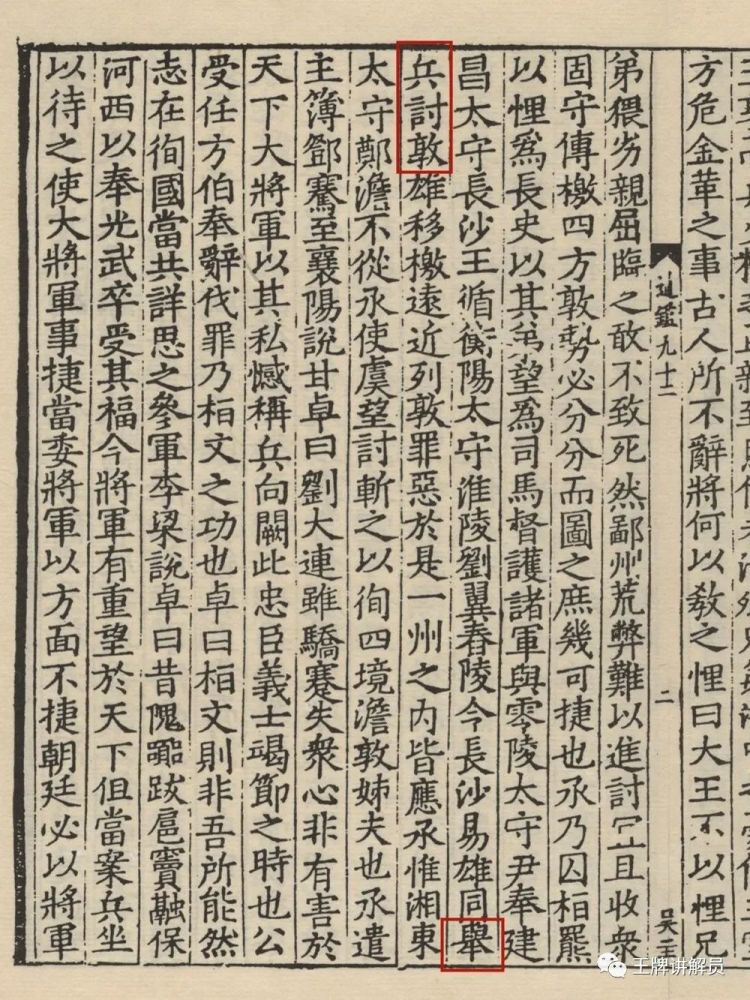 方危金革之事古人所不辭將何以敎之悝曰大王不以悝兄
通鑑九十二
二
弟猥劣親屈臨之敢不致死然鄙州荒弊難以進討宜且收衆
固守傳檄四方敦勢必分分而圖之庶幾可捷也承乃囚桓羆
以悝爲長史以其弟望爲司馬督護諸軍與零陵太守尹奉建
昌太守長沙王循衡陽太守淮陵劉翼舂陵令長沙易雄同舉
兵討敦雄移檄遠近列敦罪惡於是一州之内皆應承惟湘東
太守鄭澹不從承使虞望討斬之以徇四境澹敦姊夫也承遣
主簿鄧騫至襄陽說甘卓曰劉大連雖驕蹇失衆心非有害於
天下大將軍以其私憾稱兵向闕此忠臣義士竭節之時也公
受任方伯奉辭伐罪乃桓文之功也卓曰桓文則非吾所能然
志在徇國當共詳思之參軍李梁說卓曰昔隗囂跋扈竇融保
河西以奉光武卒受其福今將軍有重望於天下但當案兵坐
以待之使大將軍事捷當委將軍以方面不捷朝廷必以將軍
王牌讲解员